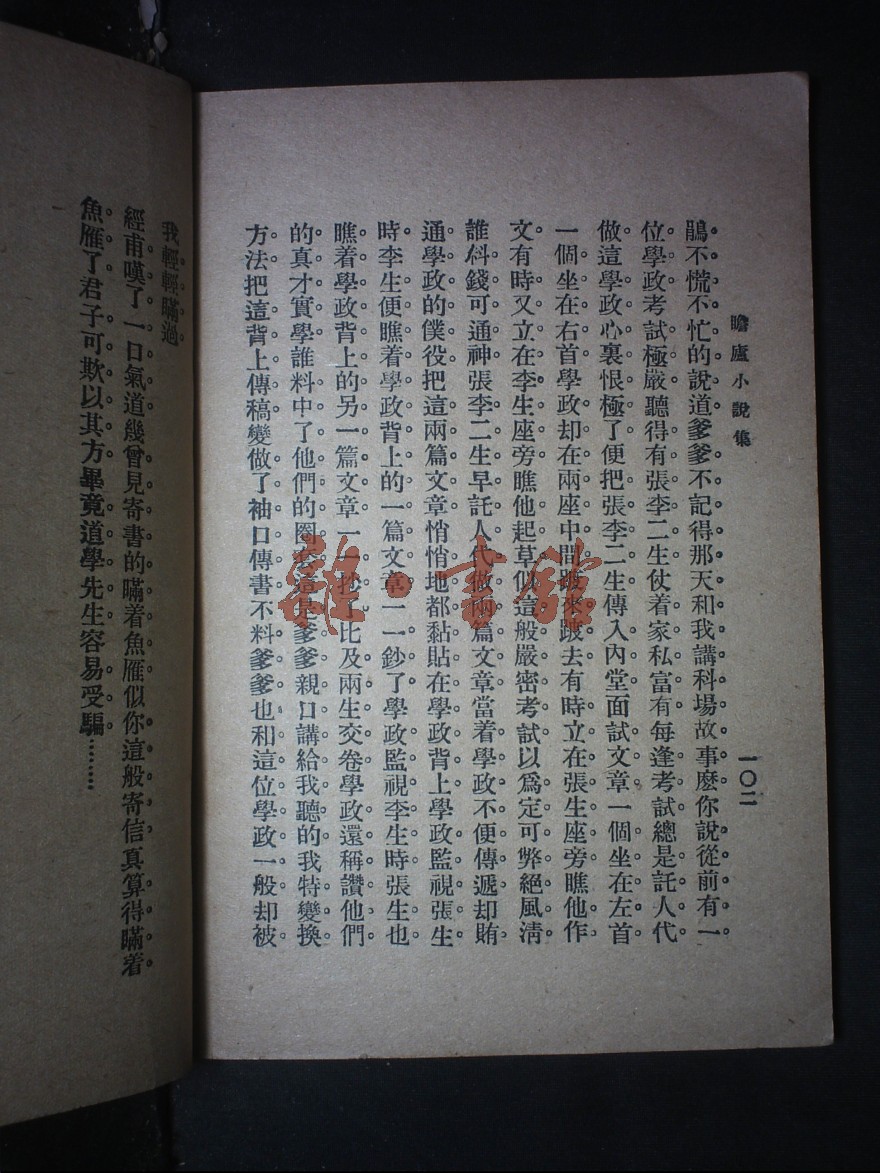 瞻廬小說集
一〇二
鵑不慌不忙的說道爹爹不記得那天和我講科場故事麽你說從前有一
位學政考試極嚴聽得有張李二生仗着家私富有每逢考試總是託人代
做這學政心裏恨極了便把張李二生傳入內堂面試文章一個坐在左首
一個坐在右首學政却在兩座中間踱來踱去有時立在張生座旁瞧他作
文有時又立在李生座旁瞧他起草似這般嚴密考試以爲定可弊絕風淸
誰料錢可通神張李二生早託人代做兩篇文章當着學政不便傳遞却賄
通學政的僕役把這兩篇文章悄悄地都黏貼在學政背上學政監視張生
時李生便瞧着學政背上的一篇文章一一鈔了學政監視李生時張生也
瞧着學政背上的另一篇文章一一抄了比及兩生交卷學政還稱讚他們
的真才實學誰料中了他們的圈套這是爹爹親口講給我聽的我特變換
方法把這背上傳稿變做了袖口傳書不料爹爹也和這位學政一般却被
我輕輕瞞過
經甫嘆了一口氣道幾曾見寄書的瞞着魚雁似你這般寄信真算得瞞着
魚雁了君子可欺以其方畢竟道學先生容易受騙………
雜·書館